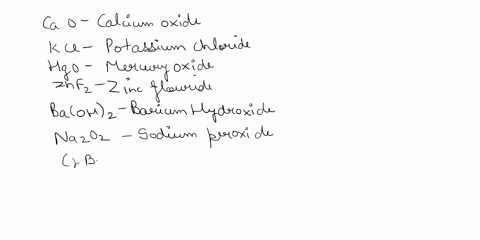 Ca O - Calcium oxide
KCl - Potassium chloride
HgO - Mercury oxide
ZnF2 - Zinc flouride
Ba(OH)2 - Barium Hydroxide
Na2O2 - Sodium piroxide
Cs B